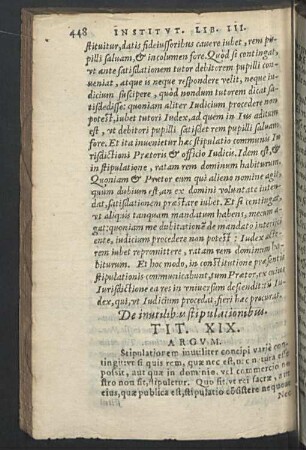 448 INSTITVT. LIB. III.
stituitur, datis fideiussoribus cavere iubet, rem pu-
pilli salvam, & incolumen fore. Quòd si contingat,
vt ante satisdationem tutor debitorem pupilli con-
veniat, atque is neque respondere velit, neque iu-
dicium suscipere, quòd nondum tutorem dicat sa-
tisdedisse: quoniam aliter Iudicium procedere non
potest, iubet tutori Iudex, ad quem in Ius aditum
est, vt debitori pupilli satisdet rem pupilli salvam
fore. Et ita invenietur hæc stipulatio communis Iu-
risdictioni Prætoris & officio Iudicis. Idem est, &
in stipulatione, ratam rem dominum habiturum.
Quoniam & Prætor eum qui alieno nomine agit,
quum dubium est, an ex domini voluntate inten-
dat, satisdationem præstare iubet. Et si contingat,
vt aliquis tanquam mandatum habens, mecum a-
gat: quoniam me dubitationẽ de mandato iniiciente,
iudicium procedere non potest: Iudex
rem iubet repromittere, ratam rem dominum ha-
biturum. Et hoc modo, in constitutione præsentis
stipulationis communicabunt, tum Prætor, ex
Iurisdictione ea res in vniversum descendit: tum Iu-
dex, qui, vt Iudicium procedat, fieri hæc procurat.
De inutilibus stipulationibus.
TIT. XIX.
ARGVM.
Stipulationem inutiliter concipi variè con-
tingit: vt si quis rem, quæ nec est, nec in
possit, aut quæ in dominio, vel commercio no-
stro non sit, stipuletur. Quo fit, vt rei sacræ,
eius, quæ publica est, stipulatio cõsistere nequeat
Nec